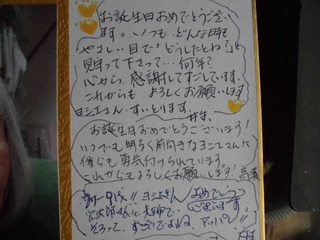 お誕生日おめでとうござい
ます。いつも、どんな時も
やさしい目で「どうしたとね?」と
見守って下さって…何年?
心から、感謝してすごしています。
これからもよろしくお願いします
ヨシエさん、すいとります。
お誕生日おめでとうございます!
いつでも明るく前向きなヨシエさんに
僕らも勇気付けられています。
これからもよろしくお願いします!
ヨシエさん
おめでとう
ございます
そろって、すごいですね。アッパレ!!